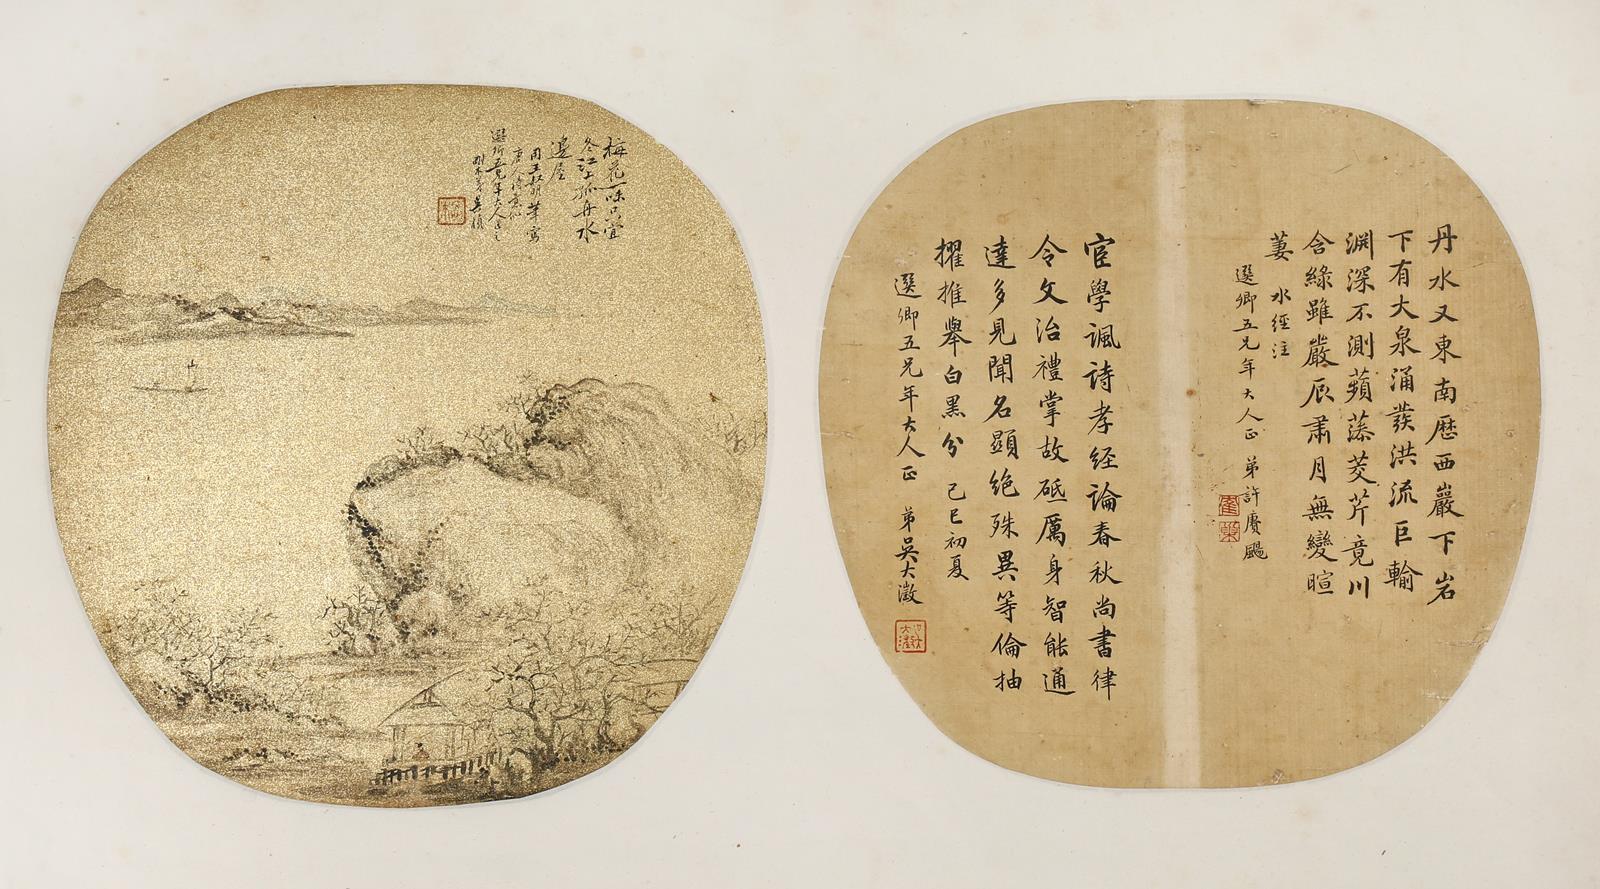 丹水又東南歷西巖下岩
下有大泉涌發洪流巨輸
淵深不測蘋藻茭芹竟川
含綠雖嚴辰肅月無變暄
萋 水經注
選卿五兄年大人正 弟許賡颺
宦學諷詩孝經論春秋尚書律
令文治禮掌故砥厲身智能通
達多見聞名顯絶殊異等倫抽
擢推舉白黑分 己巳初夏
選卿五兄年大人正 弟吳大澂
梅花一味只宜
冬江上孤舟水
邊屋